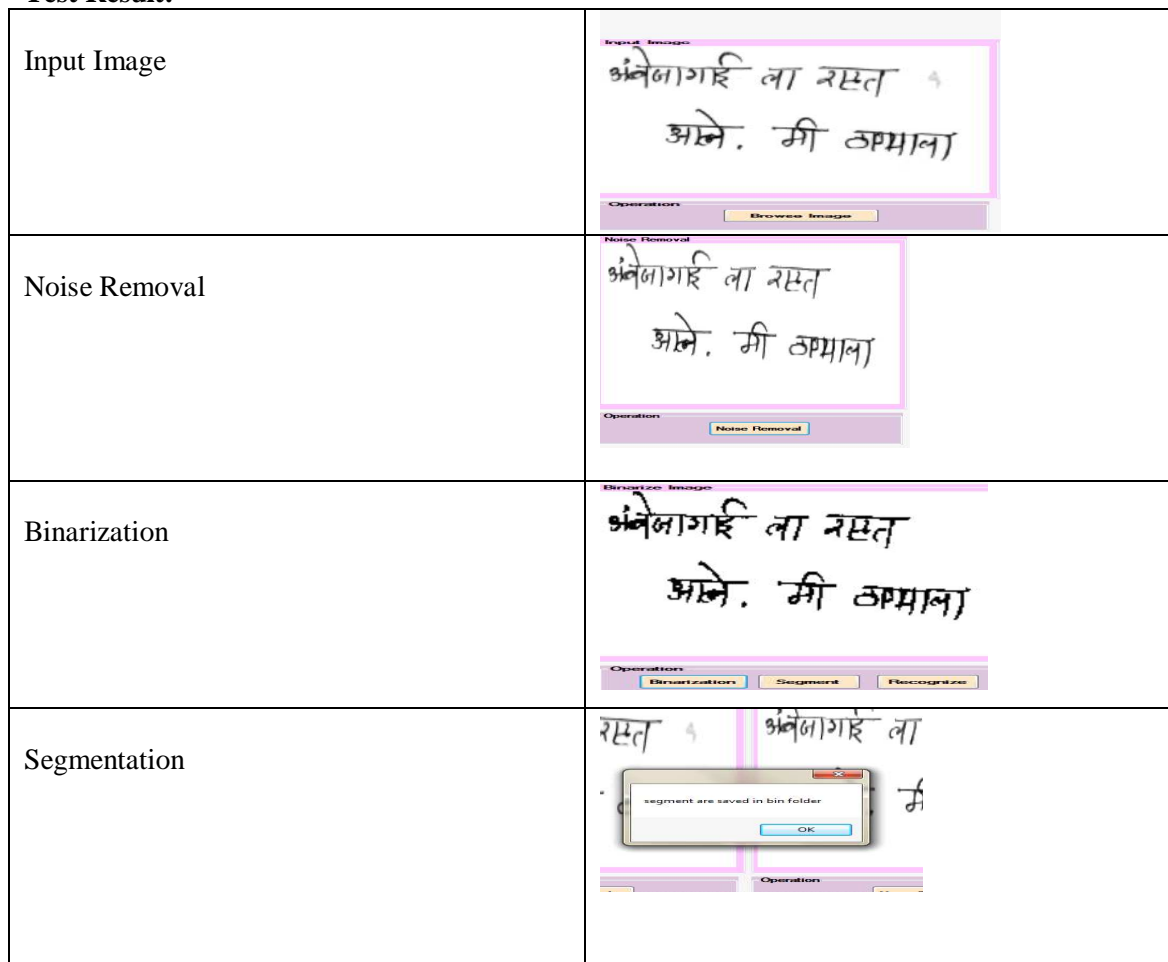 Test Result:
Input Image
Input Image
अंबेजागाई ला रस्त
आले. मी ठाण्याला
Operation
Browse Image
Noise Removal
Noise Removal
अंबेजागाई ला रस्त
आले. मी ठाण्याला
Operation
Noise Removal
Binarization
Binarize Image
अंबेजागाई ला रस्त
आले. मी ठाण्याला
Operation
Binarization Segment Recognize
Segmentation
रस्त अंबेजागाई ला
segment are saved in bin folder
OK
Operation